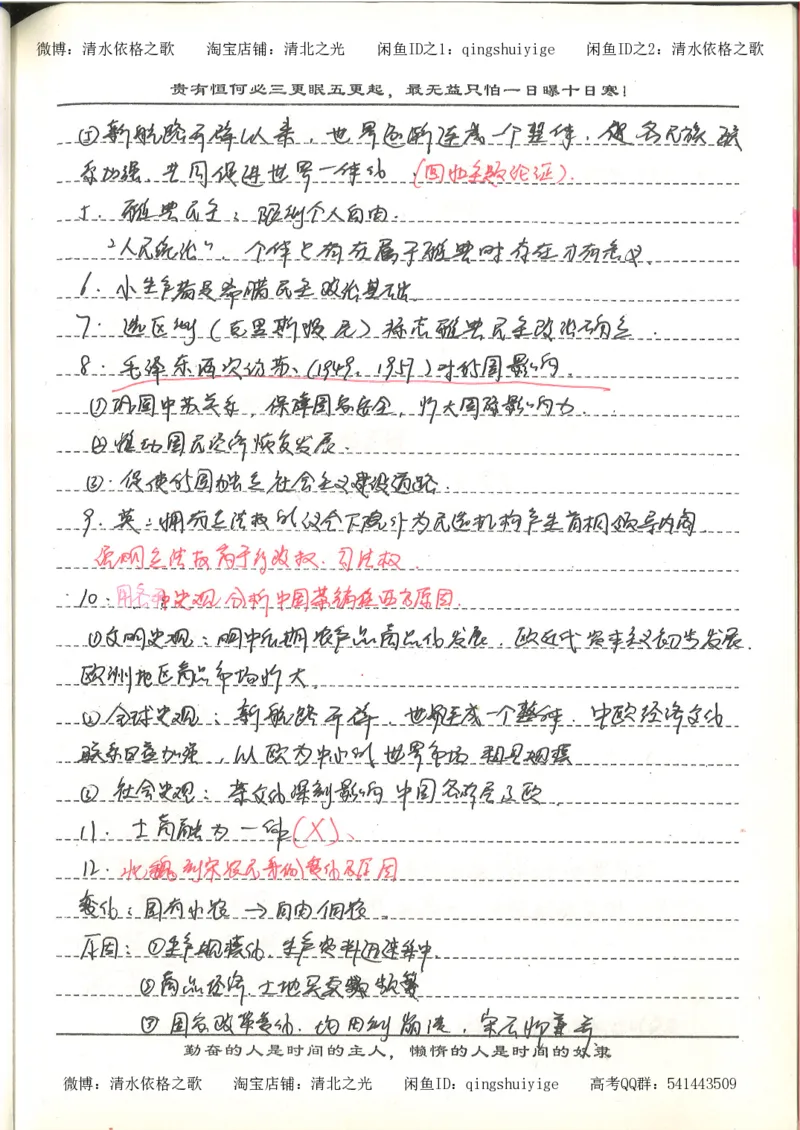 微博：清水依格之歌 淘宝店铺：清北之光 闲鱼ID之1：qingshuiyige 闲鱼ID之2：清水依格之歌
贵有恒何必三更眠五更起，最无益只怕一日曝十日寒！
③新航路开辟以来，世界逐渐连成一个整体，使各民族联
系加强，共同促进世界一体化（回归主题论证）.
5. 雅典民主：限制个人自由.
"人民统治"，个体只有在属于雅典时存在才有意义.
6. 小生产者是希腊民主政治基础.
7. 选区制（克里斯提尼）标志雅典民主政治确立.
8. 毛泽东两次访苏（1949, 1957）对我国影响.
①巩固中苏关系，保障国家安全，扩大国际影响力.
②推动国民经济恢复发展.
③促使我国独立社会主义建设道路.
9. 英：拥有立法权的议会下院外为民选机构产生首相领导内阁
说明立法权高于行政权、司法权.
10. 用多种史观分析中国茶销往西方原因.
①文明史观：明中后期农产品商品化发展，欧近代资本主义初步发展.
欧洲地区商品市场扩大.
②全球史观：新航路开辟，世界连成一个整体，中欧经济文化
联系日益加强，以欧为中心的世界市场 初见端倪
③社会史观：茶文化深刻影响中国各阶层及欧.
11. 士商融为一体（X）、
12. 北魏到宋农民身份变化及原因
变化：国有小农→自由佃农.
原因：①生产规模化，生产资料迅速集中.
②商品经济，土地买卖频繁
③国家政策变化，均田制崩溃，宋不抑兼并
勤奋的人是时间的主人，懒惰的人是时间的奴隶
微博：清水依格之歌 淘宝店铺：清北之光 闲鱼ID：qingshuiyige 高考QQ群：541443509